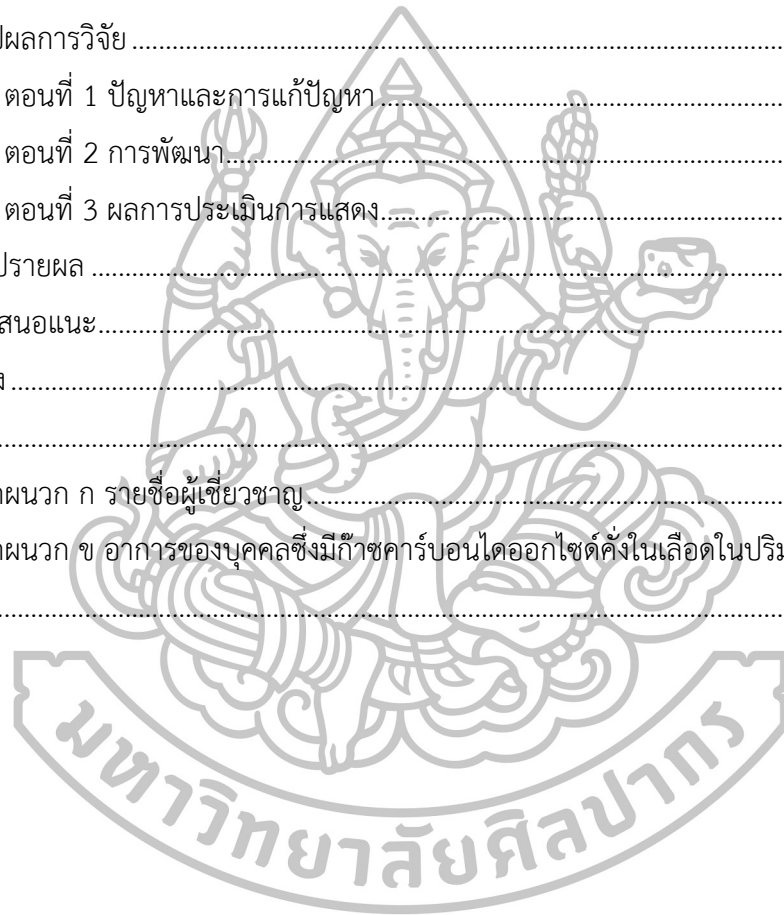 ปผลการวิจัย ................................................................................
ตอนที่ 1 ปัญหาและการแก้ปัญหา ................................................................................
ตอนที่ 2 การพัฒนา ................................................................................
ตอนที่ 3 ผลการประเมินการแสดง ................................................................................
ปรายผล ................................................................................
สนอแนะ ................................................................................
................................................................................
ผนวก ก รายชื่อผู้เชี่ยวชาญ ................................................................................
ผนวก ข อาการของบุคคลซึ่งมีก๊าซคาร์บอนไดออกไซด์คั่งในเลือดในปริม
................................................................................
มหาวิทยาลัยศิลปากร